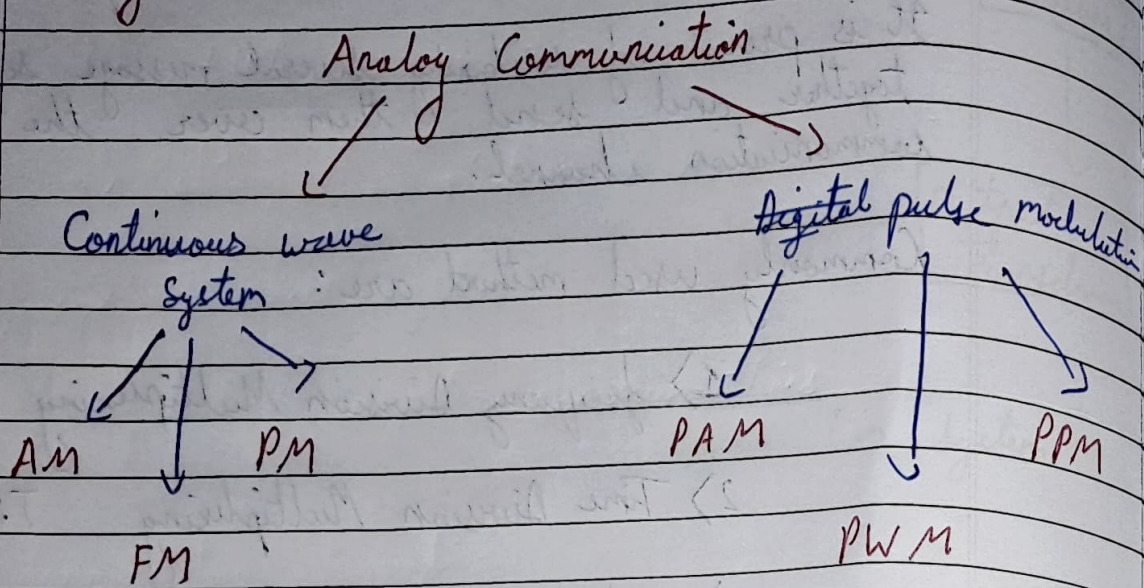 Analog Communication
Continuous wave
System
Digital pulse modulation
AM
PM
FM
PAM
PPM
PWM